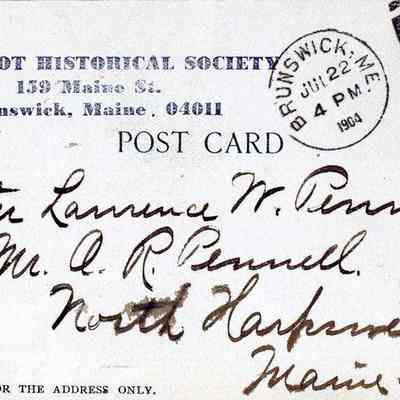 OT HISTORICAL SOCIETY
159 Maine St.
nswick, Maine 04011
BRUNSWICK, ME.
JUL 22
4 PM
1904
POST CARD
er Lawrence W. Penn
Mr. A. R. Pennell.
North Harpswe
Maine
OR THE ADDRESS ONLY.